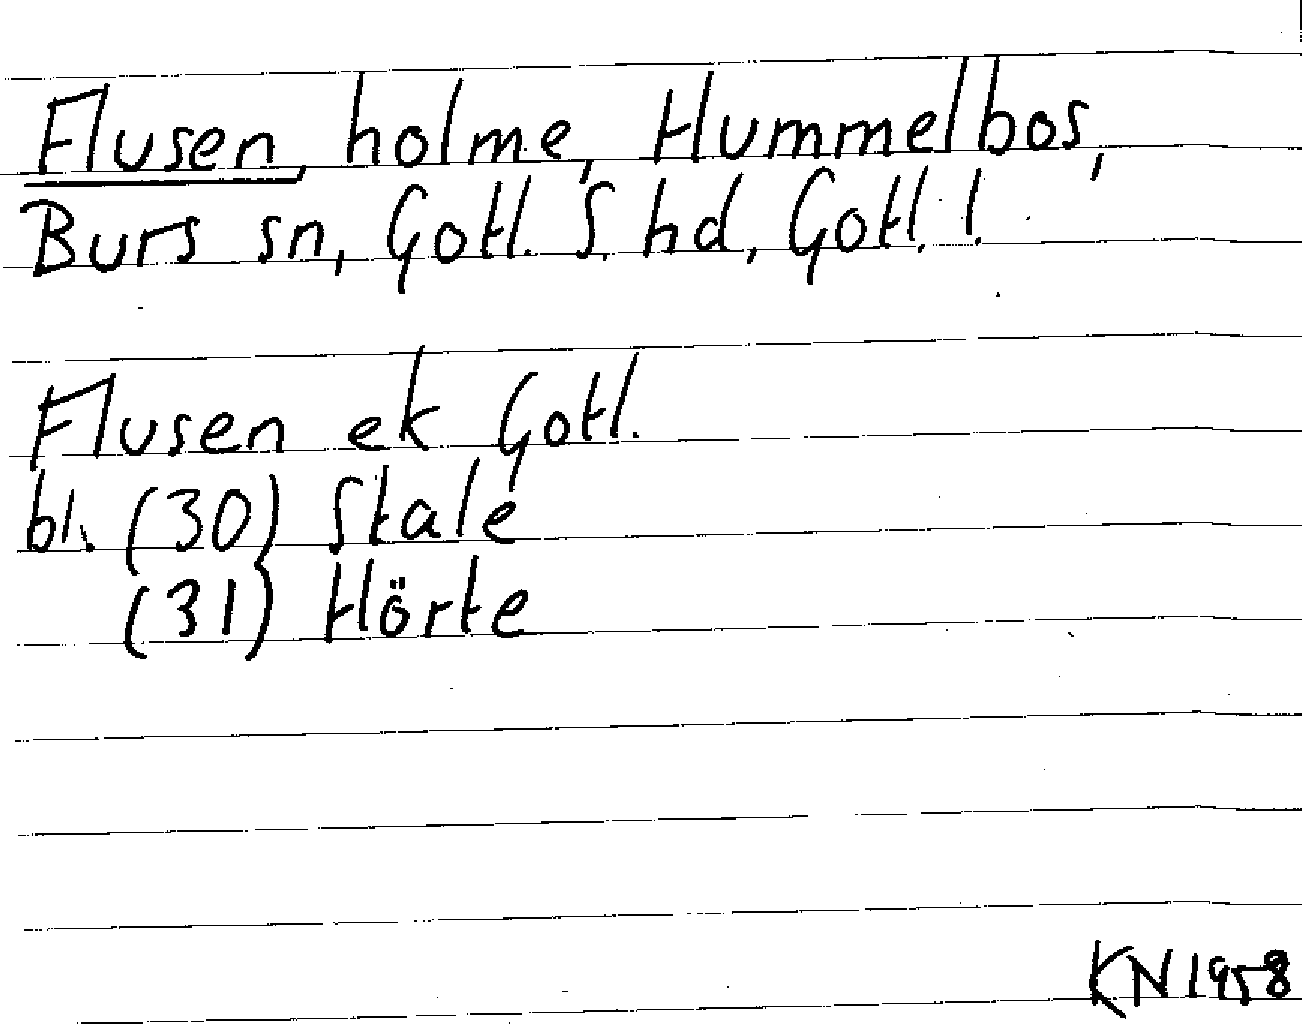 Flusen, holme, Hummelbos,
Burs sn, Gotl. S. hd, Gotl. l.
Flusen ek Gotl.
bl. (30) Stale
(31) Hörte
KN 1958